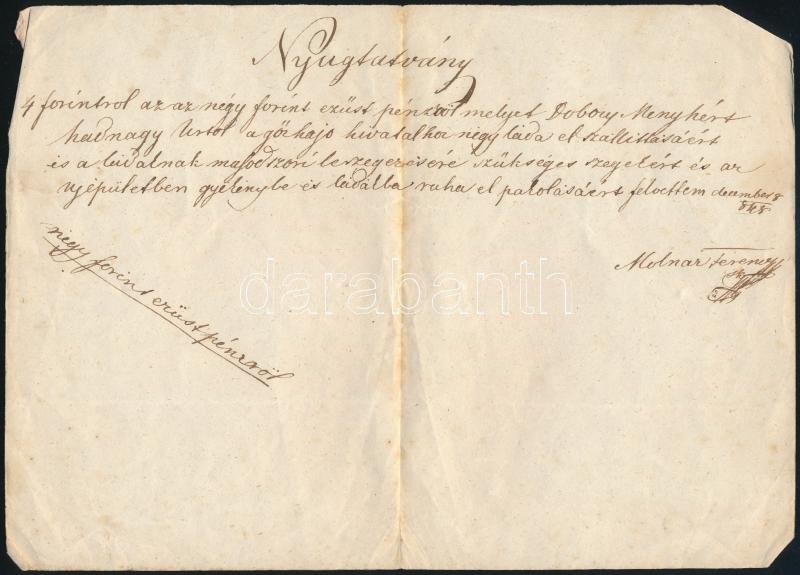 Nyugtatvány
4 forintrol az az négy forint ezüst pénzről melyet Dobozy Menyhért
hadnagy Urtol a gőzhajo hivatalhoz négy lada el szallittásaért
is a ladaknak masodszori leszegezésére szükséges szegekért és az
ujépületben gyékénybe és ladákba ruha el pakolásáért felvettem december 8
848
Molnar Ferencz
négy forint ezüst pénzről
darabanth